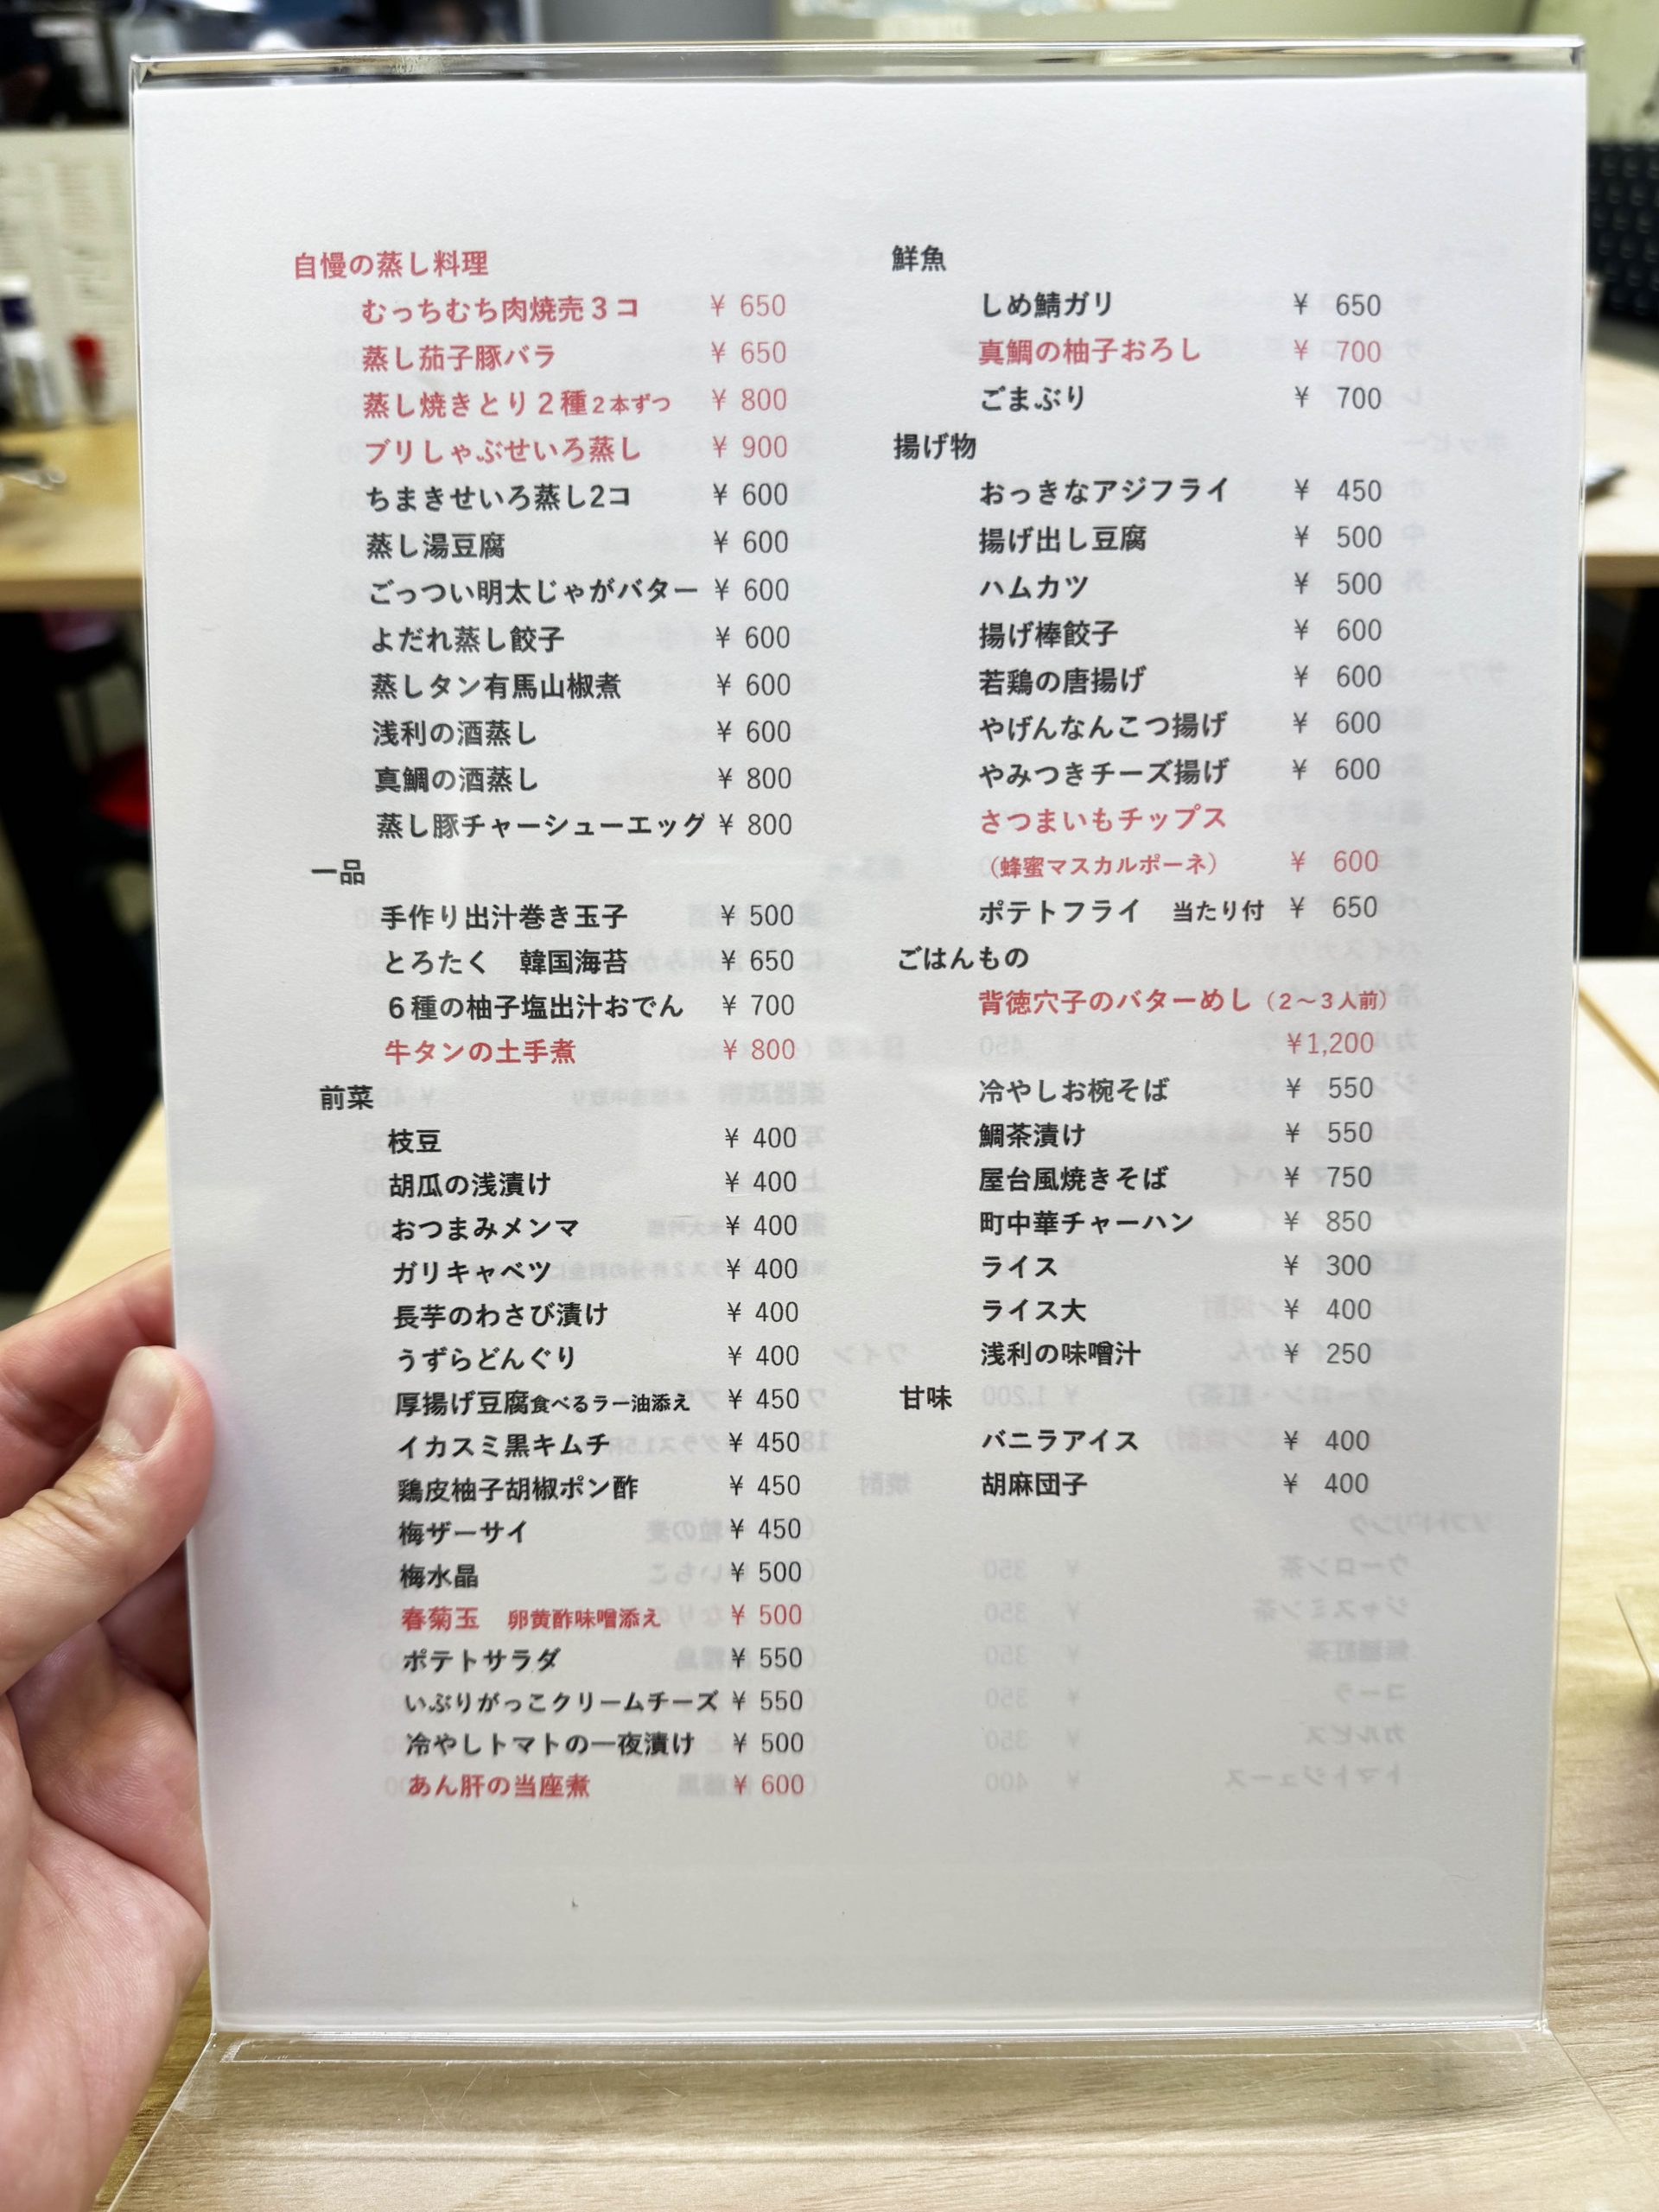 自慢の蒸し料理
むっちむち肉焼売3コ ¥ 650
蒸し茄子豚バラ ¥ 650
蒸し焼きとり2種2本ずつ ¥ 800
ブリしゃぶせいろ蒸し ¥ 900
ちまきせいろ蒸し2コ ¥ 600
蒸し湯豆腐 ¥ 600
ごっつい明太じゃがバター ¥ 600
よだれ蒸し餃子 ¥ 600
蒸しタン有馬山椒煮 ¥ 600
浅利の酒蒸し ¥ 600
真鯛の酒蒸し ¥ 800
蒸し豚チャーシューエッグ ¥ 800
一品
手作り出汁巻き玉子 ¥ 500
とろたく 韓国海苔 ¥ 650
6種の柚子塩出汁おでん ¥ 700
牛タンの土手煮 ¥ 800
前菜
枝豆 ¥ 400
胡瓜の浅漬け ¥ 400
おつまみメンマ ¥ 400
ガリキャベツ ¥ 400
長芋のわさび漬け ¥ 400
うずらどんぐり ¥ 400
厚揚げ豆腐食べるラー油添え ¥ 450
イカスミ黒キムチ ¥ 450
鶏皮柚子胡椒ポン酢 ¥ 450
梅ザーサイ ¥ 450
梅水晶 ¥ 500
春菊玉 卵黄酢味噌添え ¥ 500
ポテトサラダ ¥ 550
いぶりがっこクリームチーズ ¥ 550
冷やしトマトの一夜漬け ¥ 500
あん肝の当座煮 ¥ 600
鮮魚
しめ鯖ガリ ¥ 650
真鯛の柚子おろし ¥ 700
ごまぶり ¥ 700
揚げ物
おっきなアジフライ ¥ 450
揚げ出し豆腐 ¥ 500
ハムカツ ¥ 500
揚げ棒餃子 ¥ 600
若鶏の唐揚げ ¥ 600
やげんなんこつ揚げ ¥ 600
やみつきチーズ揚げ ¥ 600
さつまいもチップス
（蜂蜜マスカルポーネ） ¥ 600
ポテトフライ 当たり付 ¥ 650
ごはんもの
背徳穴子のバターめし（2～3人前）
¥1,200
冷やしお椀そば ¥ 550
鯛茶漬け ¥ 550
屋台風焼きそば ¥ 750
町中華チャーハン ¥ 850
ライス ¥ 300
ライス大 ¥ 400
浅利の味噌汁 ¥ 250
甘味
バニラアイス ¥ 400
胡麻団子 ¥ 400